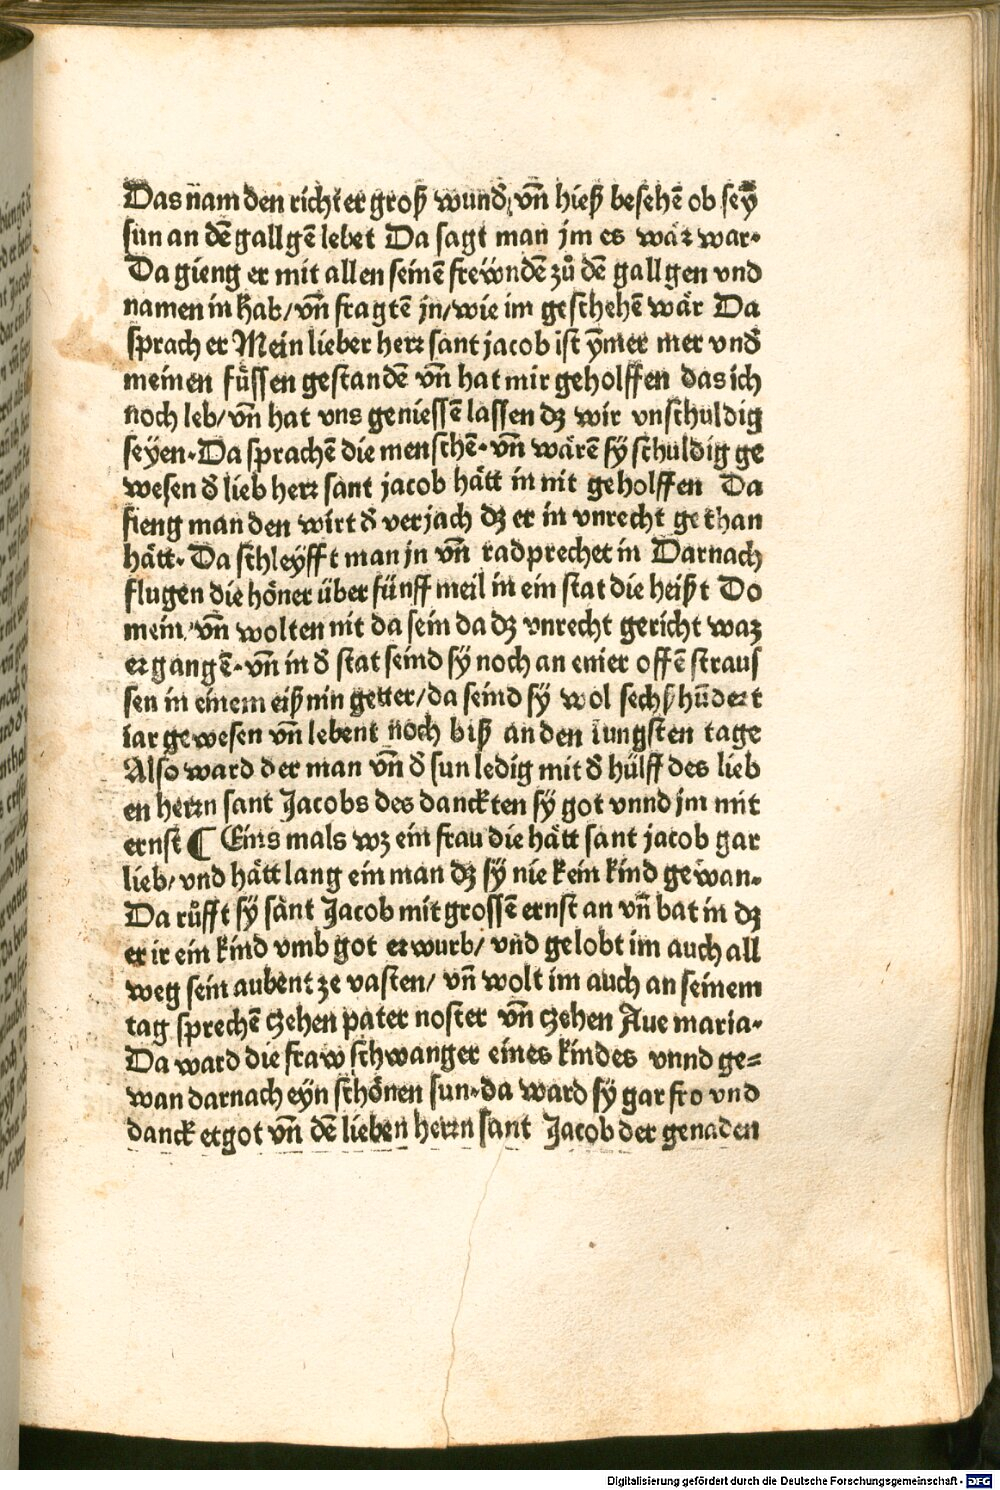 Das nam den richter groß wund᷑ vn̄ hieß besehē ob seӱ
sun an dē gallgē lebet Da sagt man jm es wăr war·
Da gieng er mit allen seinē freẅndē zů dē gallgen vnd
namen in hab/vn̄ fragtē jn/wie im geschehē wăr Da
sprach er Mein lieber herr sant jacob ist ӱmer mer vnd᷑
meinen fu̇ssen gestandē vn̄ hat mir geholffen das ich
noch leb/vn̄ hat vns geniessē lassen dz wir vnschuldig
seyen·Da sprachē die menschē·vn̄ wărē sÿ schuldig ge
wesen d᷑ lieb herr sant jacob hătt in nit geholffen Da
fieng man den wirt d᷑ verjach dz er in vnrecht gethan
hătt·Da schleÿfft man jn vn̄ radprechet in Darnach
flugen die höner über fünff meil in ein stat die heißt Do
mein/vn̄ wolten nit da sein da dz vnrecht gericht waz
ergangē·vn̄ in d᷑ stat seind sÿ noch an einer offē straus
sen in einem eißnin getter/da seind sÿ wol sechßhūdert
iar gewesen vn̄ lebent noch biß an den iungsten tage
Also ward der man vn̄ d᷑ sun ledig mit d᷑ hülff des lieb
en herrn sant Jacobs des danckten sÿ got vnnd jm mit
ernst ¶ Eins mals wz ein frau die hătt sant jacob gar
lieb/vnd hătt lang ein man dz sÿ nie kein kind gewan·
Da růfft sÿ sant Jacob mit grossē ernst an vn̄ bat in dz
er ir ein kind vmb got erwurb/vnd gelobt im auch all
weg sein aubent ze vasten/vn̄ wolt im auch an seinem
tag sprechē czehen pater noster vn̄ czehen Aue maria·
Da ward die fraw schwanger eines kindes vnnd ge=
wan darnach eyn schönen sun·da ward sÿ gar fro vnd
dancketgot vn̄ dē lieben herrn sant Jacob der genaden
Digitalisierung gefördert durch die Deutsche Forschungsgemeinschaft - DFG